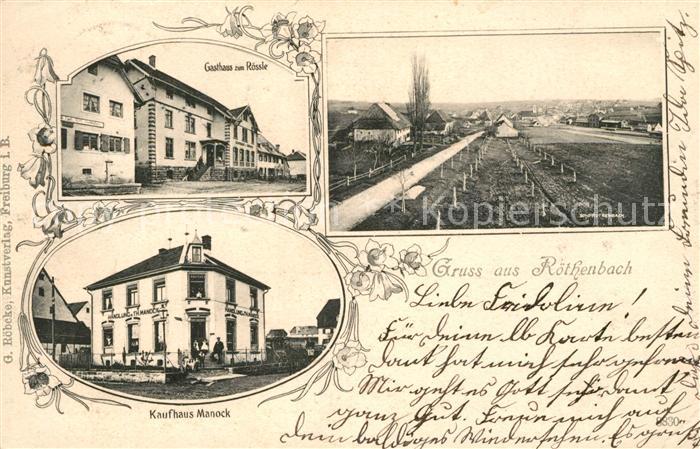 Gasthaus zum Rössle
G. Röbcke, Kunstverlag, Freiburg i. B.
HANDLUNG TH. MANOCK
HANDLUNG
Kaufhaus Manock
Gruss aus Röthenbach
Liebe Fridoline!
Für deine lb Karte besten
Dank hat mich sehr gefreut
Mir geht es Gott sei Dank
ganz Gut. Freue mich auf
dein baldiges Wiedersehen. Es grüßt